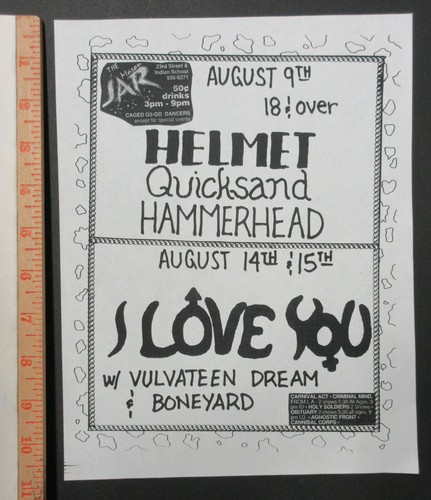 THE Mason JAR
23rd Street &
Indian School
956-6271
50¢
drinks
3pm - 9pm
CAGED GO-GO DANCERS
except for special events
AUGUST 9TH
18 & over
HELMET
Quicksand
HAMMERHEAD
AUGUST 14TH & 15TH
I LOVE YOU
W/ VULVATEEN DREAM
& BONEYARD
CARNIVAL ACT • CRIMINAL MIND,
FROM L.A. - 2 shows 5:30 All Ages, 9
pm ID • HOLY SOLDIERS 2 Shows •
OBITUARY 2 shows 5:30 all ages, 9
pm I.D. • AGNOSTIC FRONT •
CANNIBAL CORPS •
1
2
3
4
5
6
7
8
9
10
11